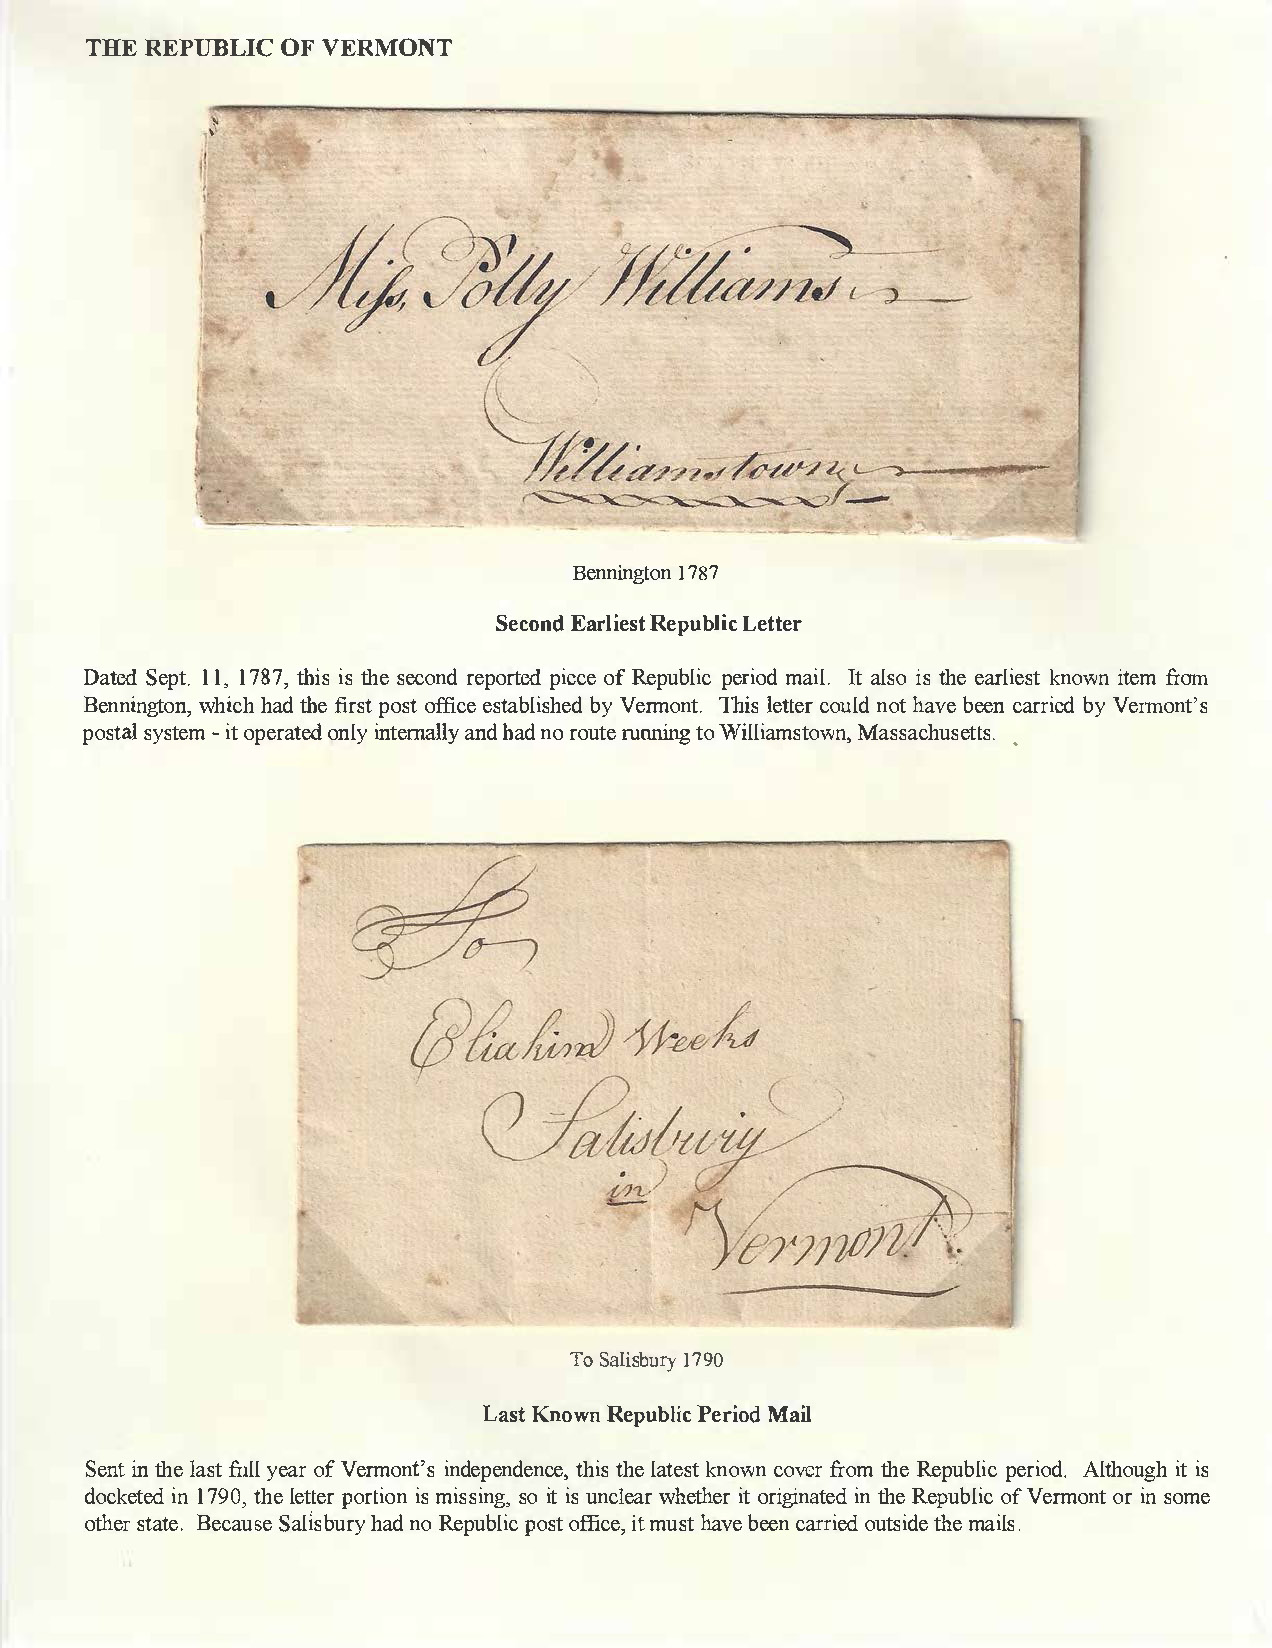 THE REPUBLIC OF VERMONT
Miſs, Polly Williams
Williamstown
Bennington 1787
Second Earliest Republic Letter
Dated Sept. 11, 1787, this is the second reported piece of Republic period mail. It also is the earliest known item from
Bennington, which had the first post office established by Vermont. This letter could not have been carried by Vermont's
postal system - it operated only internally and had no route running to Williamstown, Massachusetts.
To
Eliakim Weeks
Salisbury
in
Vermont.
To Salisbury 1790
Last Known Republic Period Mail
Sent in the last full year of Vermont's independence, this the latest known cover from the Republic period. Although it is
docketed in 1790, the letter portion is missing, so it is unclear whether it originated in the Republic of Vermont or in some
other state. Because Salisbury had no Republic post office, it must have been carried outside the mails.